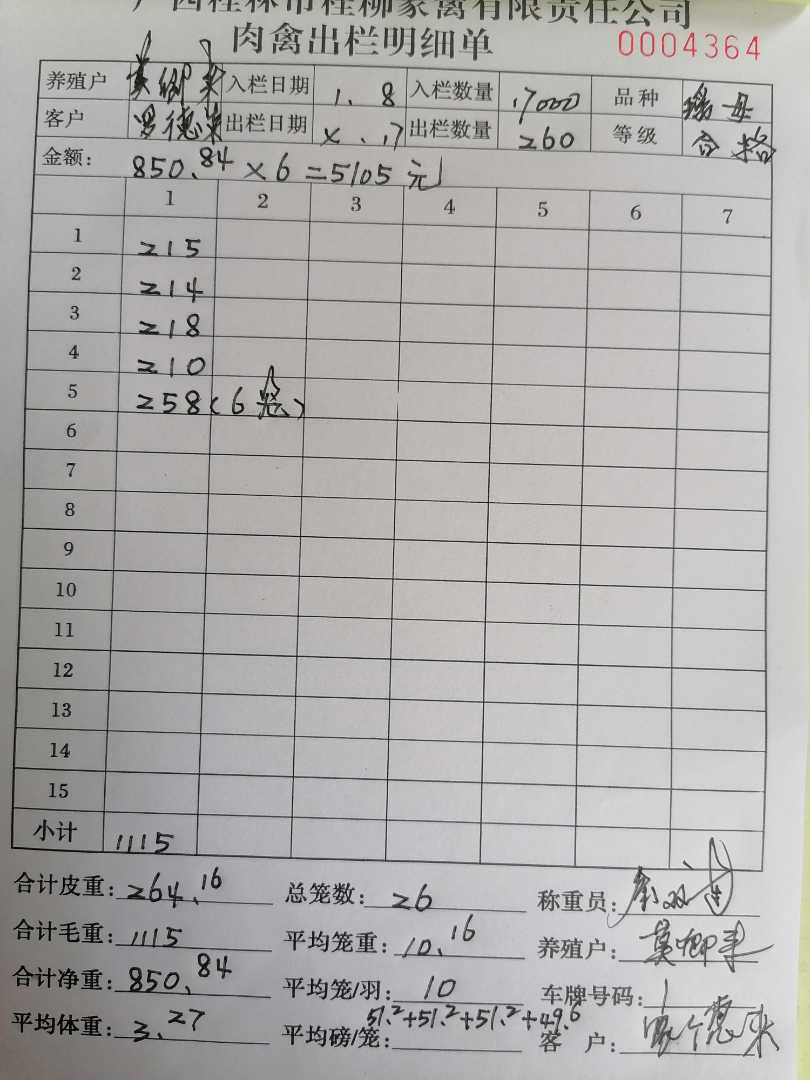 广西桂林市桂柳家禽有限责任公司
肉禽出栏明细单 0004364
养殖户 莫卿来 入栏日期 1.8 入栏数量 17000 品种 瑶母
客户 罗德荣 出栏日期 4.17 出栏数量 260 等级 合格
金额: 850.84×6=5105元
1 2 3 4 5 6 7
1 215
2 214
3 218
4 210
5 258(6笼)
6
7
8
9
10
11
12
13
14
15
小计 1115
合计皮重: 264.16 总笼数: 26 称重员:
合计毛重: 1115 平均笼重: 10.16 养殖户: 莫卿来
合计净重: 850.84 平均笼/羽: 10 车牌号码: 1
平均体重: 3.27 平均磅/笼: 51.2+51.2+51.2+49.6 客户: